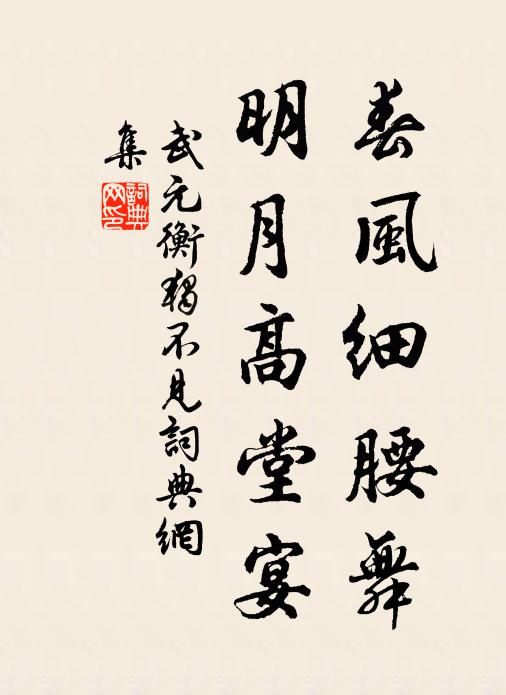 春風細腰舞
明月高堂宴
武元衡獨不見詞典網
集
詞典網印